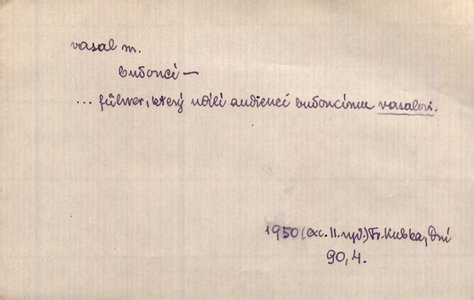 vasal m.
budoucí —
... führer, který udílí audienci budoucímu vasalovi.
1950 (exc. II. vyd.) Fr. Kubka, Dni
90, 4.